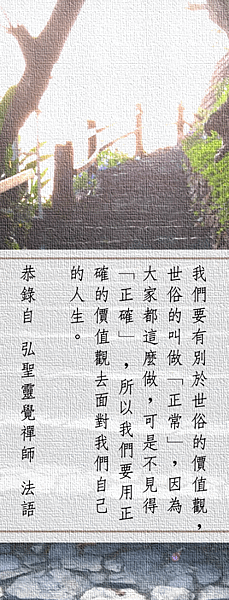 我們要有別於世俗的價值觀，
世俗的叫做「正常」，因為
大家都這麼做，可是不見得
「正確」，所以我們要用正
確的價值觀去面對我們自己
的人生。
恭錄自 弘聖靈覺禪師 法語